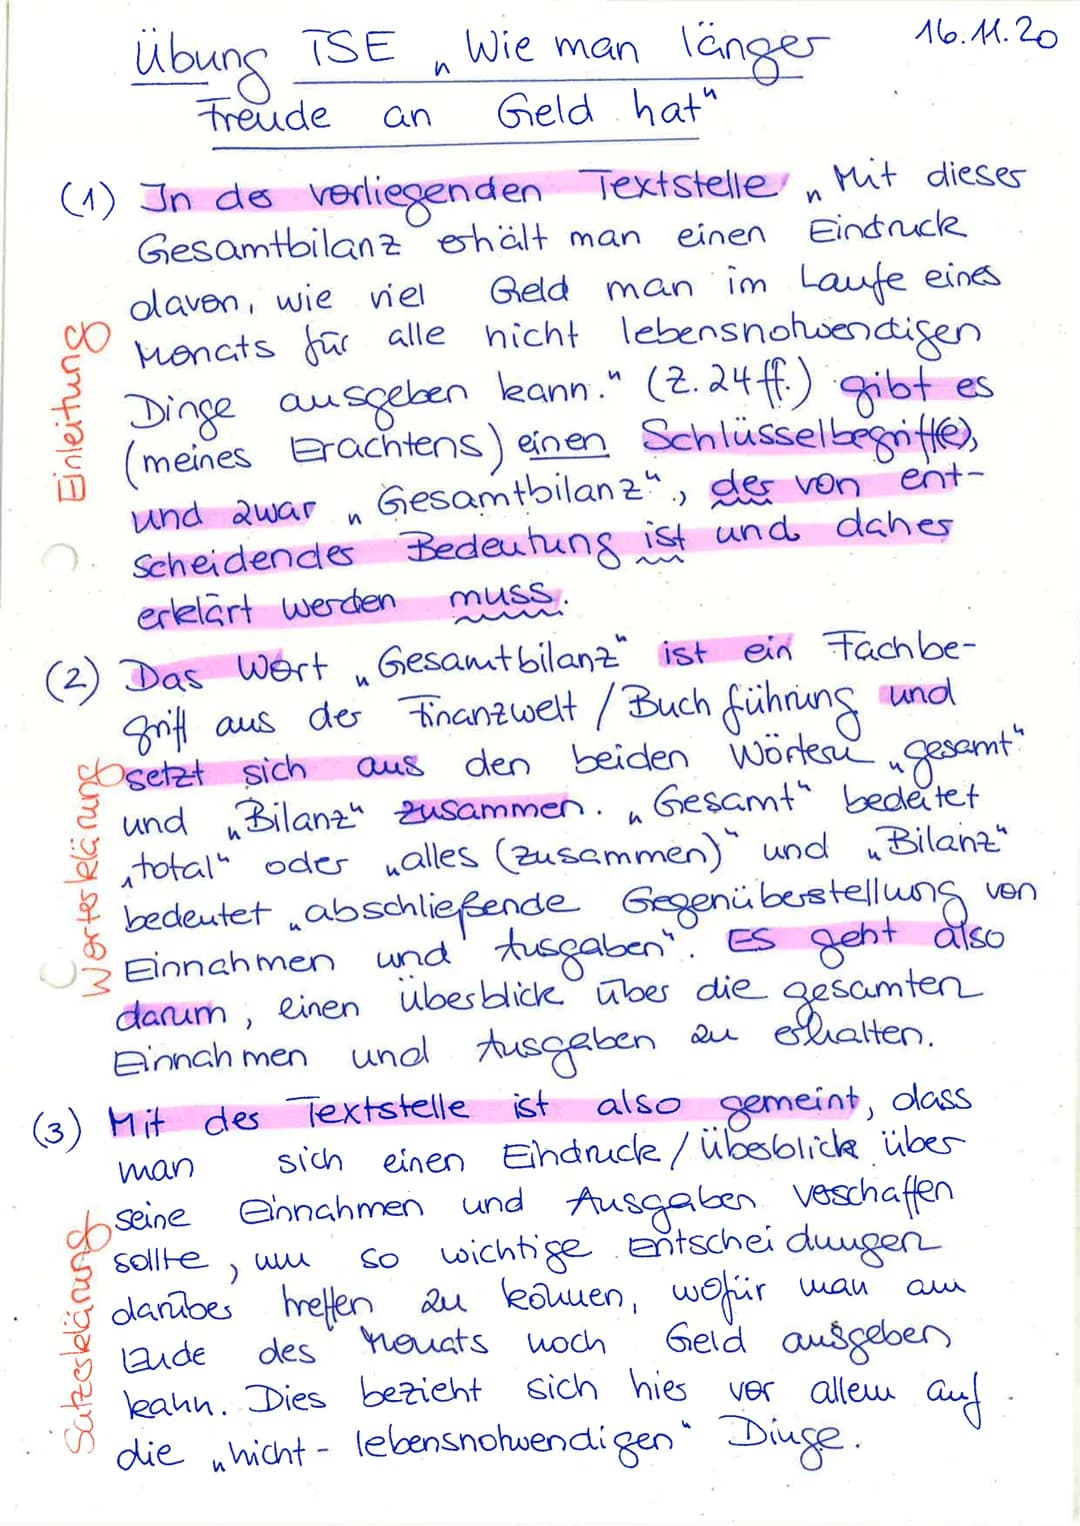 16.11.20
Übung TSE „Wie man länger
Freude an Geld hat"
(1) In der vorliegenden Textstelle „Mit dieser
Gesamtbilanz erhält man einen Eindruck
davon, wie viel Geld man im Laufe eines
Monats für alle nicht lebensnotwendigen
Dinge ausgeben kann." (Z. 24 ff.) gibt es
(meines Erachtens) einen Schlüsselbegriff(e),
und zwar „Gesamtbilanz", der von ent-
scheidender Bedeutung ist und daher
erklärt werden muss.
Einleitung
(2) Das Wort „Gesamtbilanz" ist ein Fachbe-
griff aus der Finanzwelt / Buchführung und
setzt sich aus den beiden Wörtern „gesamt"
und „Bilanz" zusammen. „Gesamt" bedeutet
„total" oder „alles (zusammen)" und „Bilanz"
bedeutet „abschließende Gegenüberstellung von
Einnahmen und Ausgaben". Es geht also
darum, einen Überblick über die gesamten
Einnahmen und Ausgaben zu erhalten.
Worterklärung
(3) Mit der Textstelle ist also gemeint, dass
man sich einen Eindruck / Überblick über
seine Einnahmen und Ausgaben verschaffen
sollte, um so wichtige Entscheidungen
darüber treffen zu können, wofür man am
Ende des Monats noch Geld ausgeben
kann. Dies bezieht sich hier vor allem auf
die „nicht-lebensnotwendigen" Dinge.
Satzerklärung